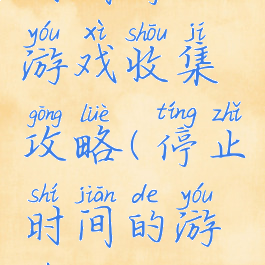 yóu xì shōu jí
游戏收集
gōng lüè tíng zhǐ
攻略(停止
shí jiān de yóu
时间的游